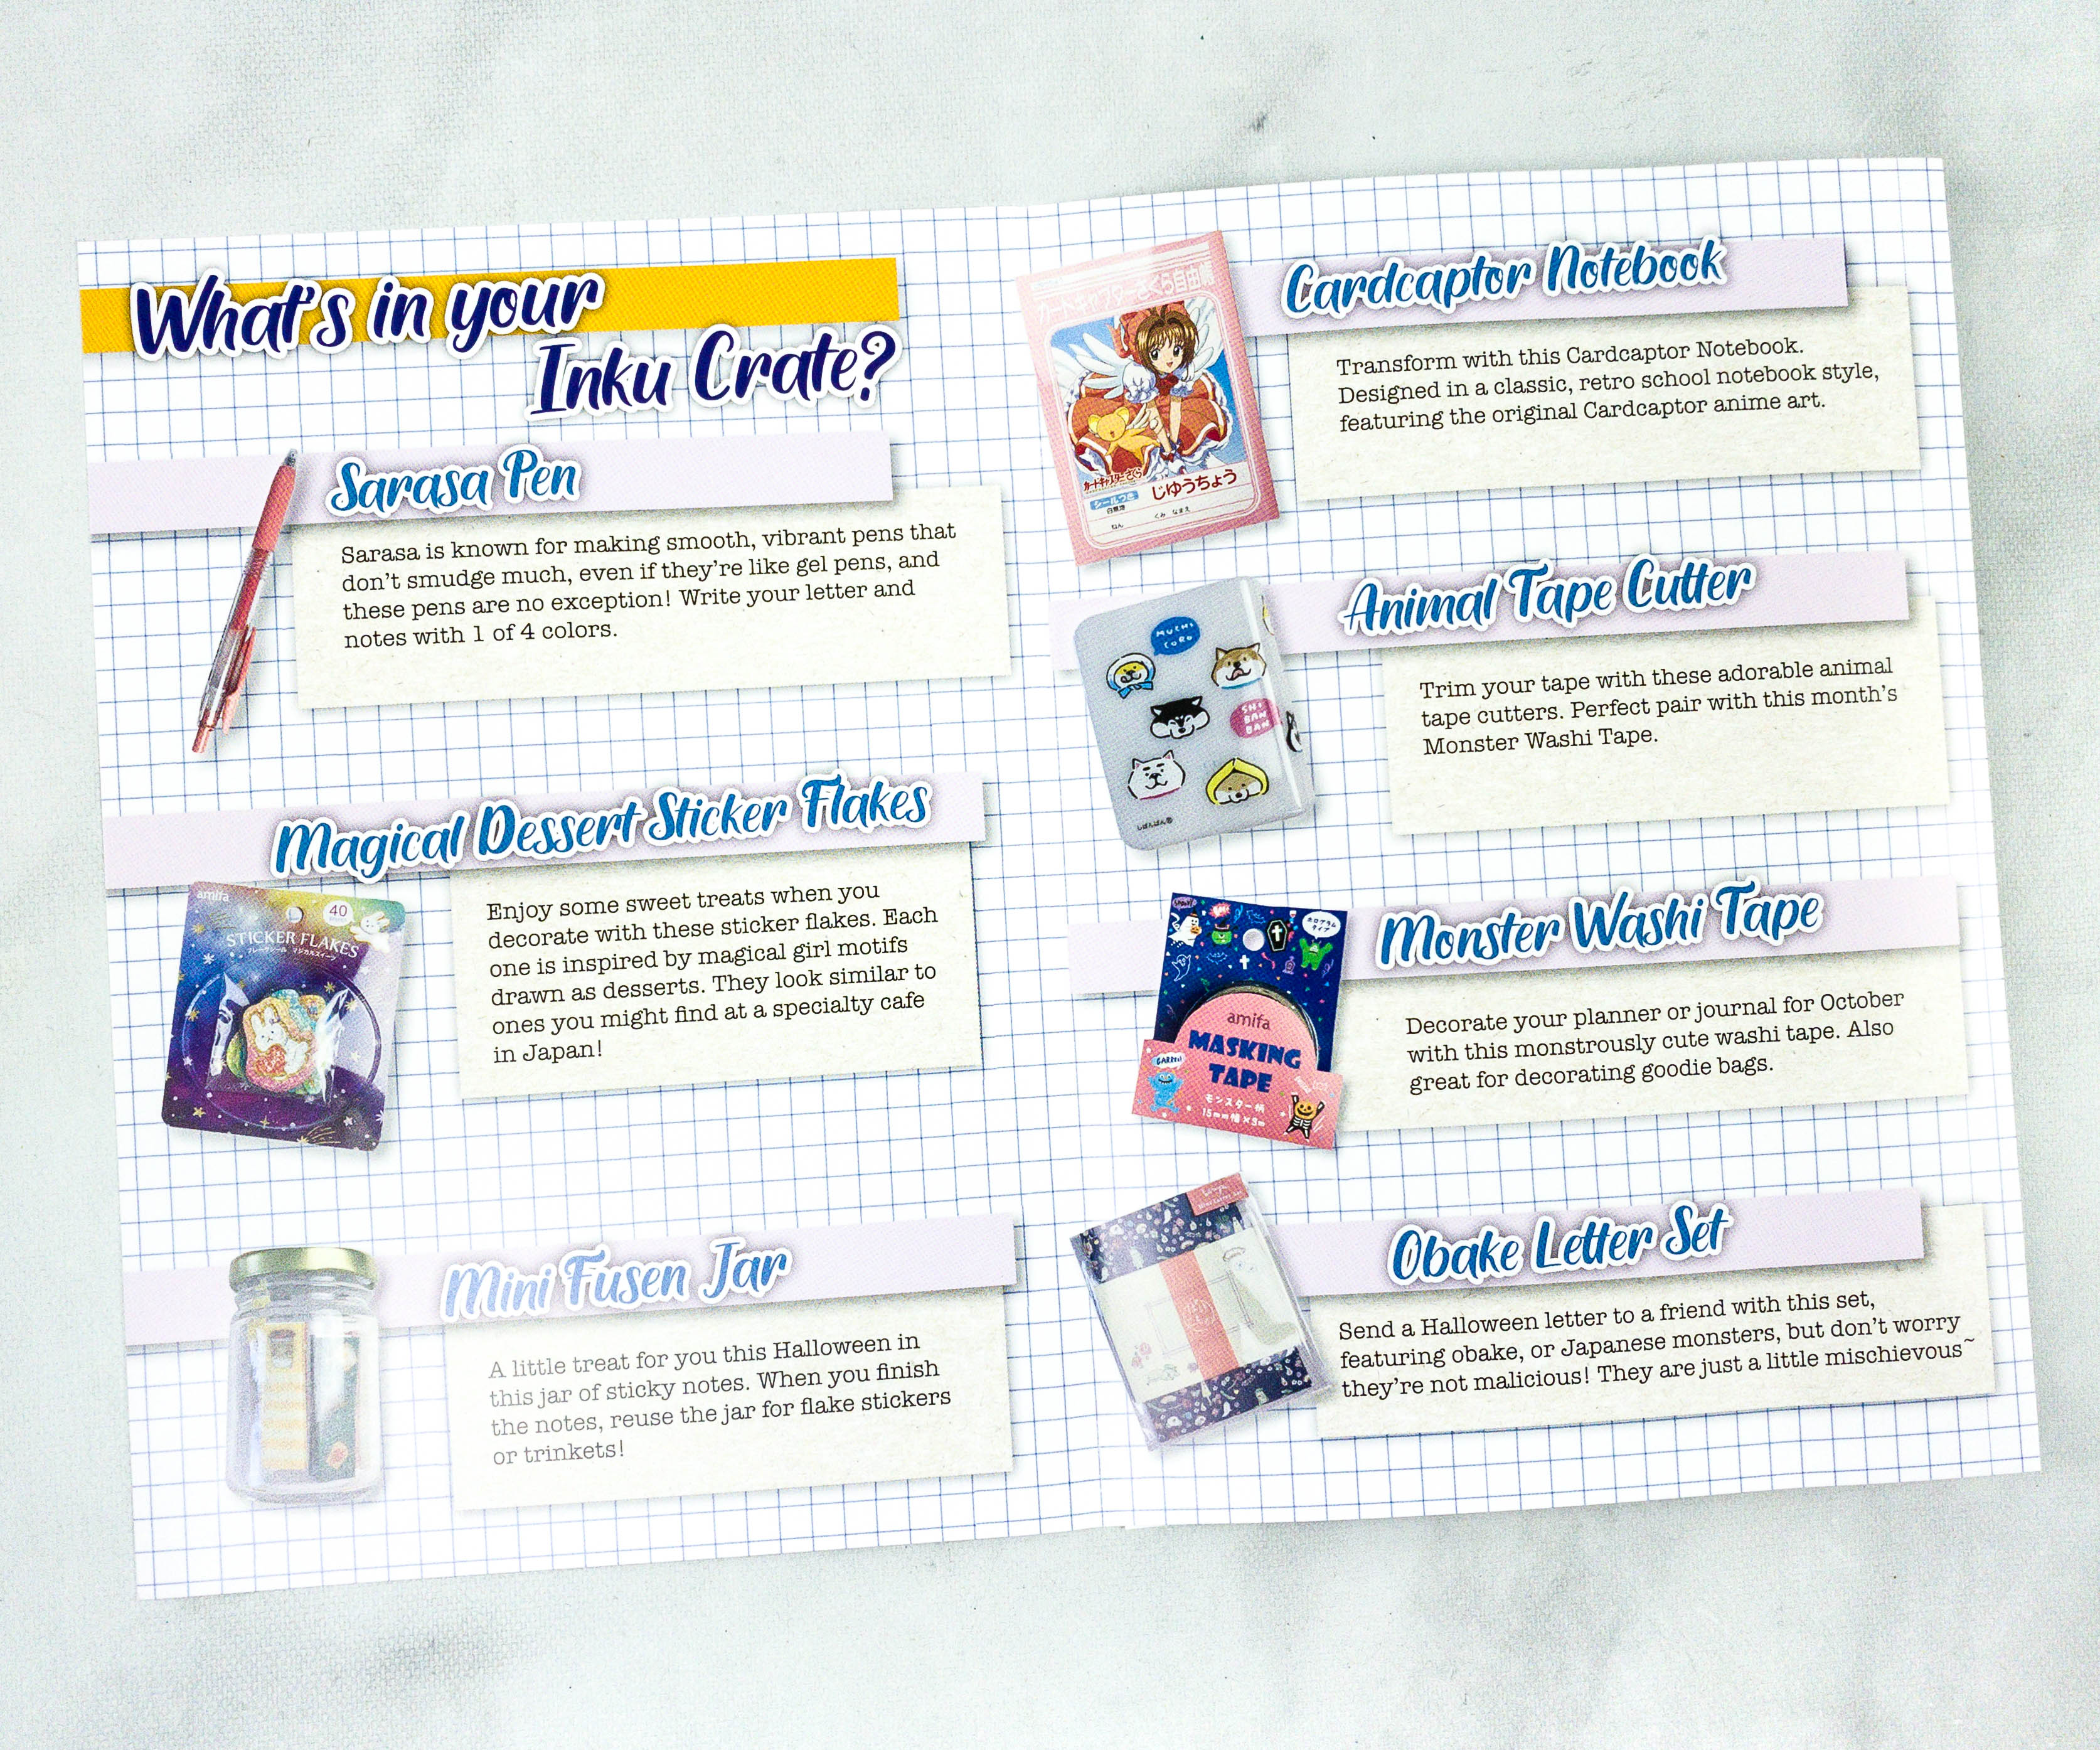 What's in your
Inku Crate?
Sarasa Pen
Sarasa is known for making smooth, vibrant pens that
don't smudge much, even if they're like gel pens, and
these pens are no exception! Write your letter and
notes with 1 of 4 colors.
Magical Dessert Sticker Flakes
amifa
40
STICKER FLAKES
フレークシール マジカルスイーツ
Enjoy some sweet treats when you
decorate with these sticker flakes. Each
one is inspired by magical girl motifs
drawn as desserts. They look similar to
ones you might find at a specialty cafe
in Japan!
Mini Fusen Jar
A little treat for you this Halloween in
this jar of sticky notes. When you finish
the notes, reuse the jar for flake stickers
or trinkets!
カードキャプターさくら自由帳
カードキャプターさくら
シールつき
じゆうちょう
白無地
ねん
くみ なまえ
Cardcaptor Notebook
Transform with this Cardcaptor Notebook.
Designed in a classic, retro school notebook style,
featuring the original Cardcaptor anime art.
MUCHI
CORO
SHI
BAN
BAN
しばんばん
Animal Tape Cutter
Trim your tape with these adorable animal
tape cutters. Perfect pair with this month's
Monster Washi Tape.
ホログラム
タイプ
amifa
MASKING
TAPE
モンスター柄
15mm幅×5m
Monster Washi Tape
Decorate your planner or journal for October
with this monstrously cute washi tape. Also
great for decorating goodie bags.
Obake Letter Set
Send a Halloween letter to a friend with this set,
featuring obake, or Japanese monsters, but don't worry
they're not malicious! They are just a little mischievous~